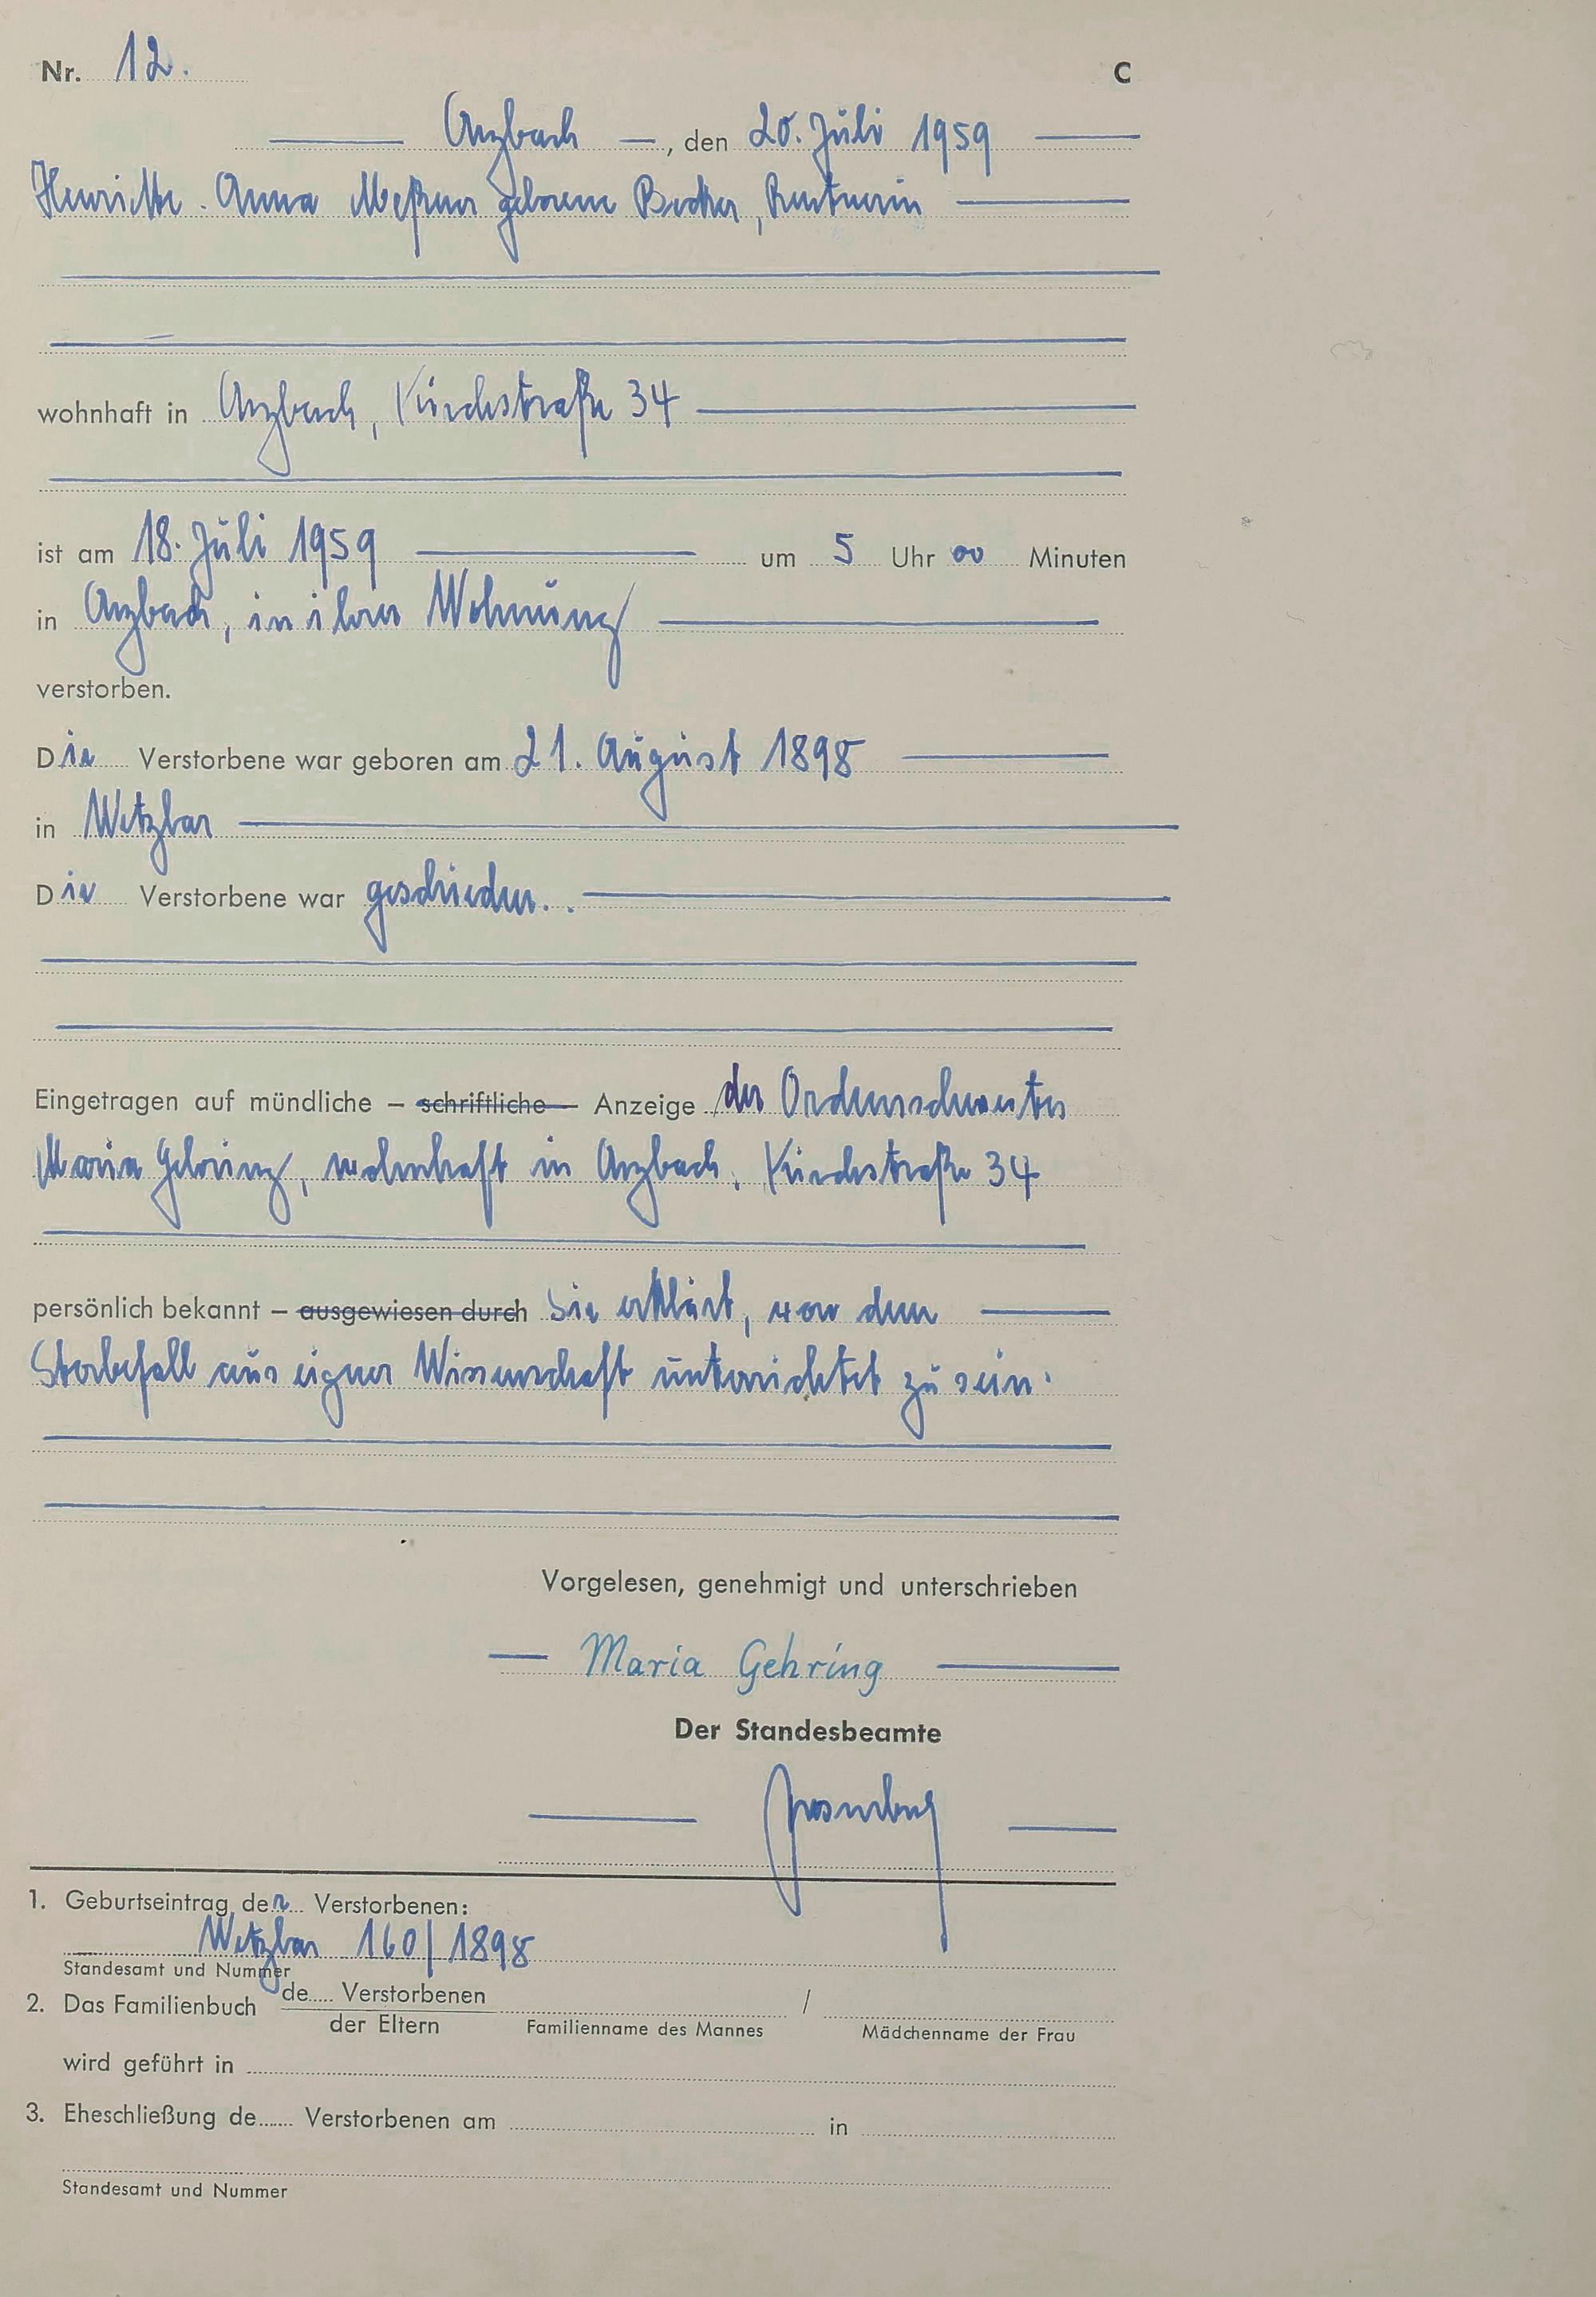 Nr. 12. C
Arzbach, den 20. Juli 1959
Henriette Anna Meßner geborene Becker, Rentnerin
wohnhaft in Arzbach, Kirchstraße 34
ist am 18. Juli 1959 um 5 Uhr 00 Minuten
in Arzbach, in ihrer Wohnung
verstorben.
Die Verstorbene war geboren am 21. August 1898
in Wetzlar
Die Verstorbene war geschieden.
Eingetragen auf mündliche – schriftliche – Anzeige der Ordensschwester
Maria Gehring, wohnhaft in Arzbach, Kirchstraße 34
persönlich bekannt – ausgewiesen durch Sie erklärt, von dem
Sterbefall aus eigner Wissenschaft unterrichtet zu sein.
Vorgelesen, genehmigt und unterschrieben
Maria Gehring
Der Standesbeamte
1. Geburtseintrag der Verstorbenen:
Wetzlar 160/1898
Standesamt und Nummer
2. Das Familienbuch de..... Verstorbenen /
der Eltern Familienname des Mannes Mädchenname der Frau
wird geführt in
3. Eheschließung de...... Verstorbenen am in
Standesamt und Nummer